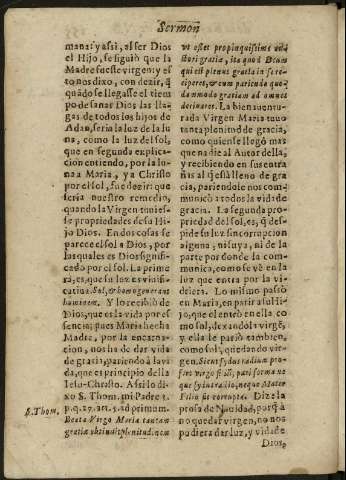 Sermon
mana: y assi, al ser Dios
el Hijo, se siguiò que la
Madre fuesse virgen: y es
to nos dixo, con dezir, q̃
quãdo se llegasse el tiem
po de sanar Dios las lla-
gas de todos los hijos de
Adan, seria la luz de la lu
na, como la luz del sol;
que en segunda explica-
cion entiendo, por la lu-
na a Maria, y a Christo
por el sol, fue dezir: que
seria nuestro remedio,
quando la Virgen tuuies-
se propriedades de su Hi-
jo Dios. En dos cosas se
parece el sol a Dios, por
las quales es Dios signifi-
cado por el sol. La prime
ra, es, que su luz es viuifi-
catiua: Sol, & homo generant
hominem. Y lo recibiò de
Dios, que es la vida por es
sencia; pues Maria hecha
Madre, por la encarna-
cion, nos ha de dar vida
de gracia, pariendo à la vi
da, que es principio della
Iesu-Christo. Assi lo di-
xo S. Thom. mi Padre 3.
p. q. 27. art. 5. ad primum.
Beata Virgo Maria tantam
gratiæ obtinuit plenitudinem
S. Thom.
vt esset propinquissima auc-
tori gratiæ, ita quod Deum
qui est plenus gratia in se re-
ciperet, & eum pariendo quo-
dammodo gratiam ad omnes
deriuaret. La bienauentu-
rada Virgen Maria tuuo
tanta plenitud de gracia,
como quien se llegò mas
que nadie al Autor della;
y recibiendo en sus entra
ñas al q̃ està lleno de gra
cia, pariendole nos comu
nicò a todos la vida de
gracia. La segunda pro-
priedad del sol, es, q̃ des-
pide su luz sin corrupcion
alguna, ni suya, ni de la
parte por donde la co-
munica, como se vè en la
luz que entra por la vi-
driera. Lo mismo passò
en Maria, en parir a su Hi-
jo, que el entrò en ella co
mo sol, dexandola virgẽ,
y ella le pariò tambien,
como sol, quedando vir-
gen. Sicut sydus radium pro-
fert virgo filium, pari forma ne
que sydus radio, neque Mater
Filio fit corrupta. Dize la
prosa de Nauidad, porq̃ à
no quedar virgen, no nos
pudiera dar luz, y vida de
Dios,